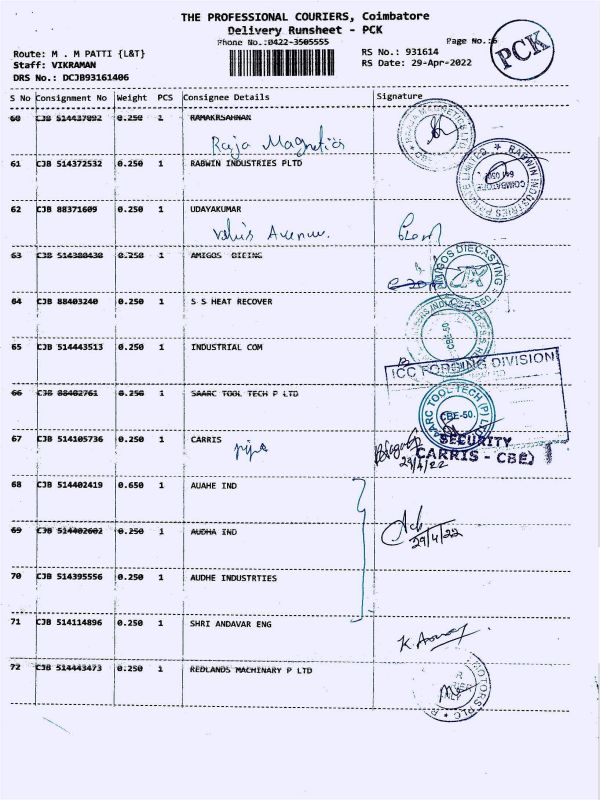 THE PROFESSIONAL COURIERS, Coimbatore
Delivery Runsheet - PCK
Phone No.:0422-3505555
Page No.:6
PCK
Route: M . M PATTI {L&T}
RS No.: 931614
Staff: VIKRAMAN
RS Date: 29-Apr-2022
DRS No.: DCJB93161406
S No Consignment No Weight PCS Consignee Details Signature
60 CJB 514437892 0.250 1 RAMAKRSAHNAN
Raja Magnetics
61 CJB 514372532 0.250 1 RABWIN INDUSTRIES PLTD
RABWIN INDUSTRIES PRIVATE LIMITED
COIMBATORE
62 CJB 88371609 0.250 1 UDAYAKUMAR
Avenue.
63 CJB 514380430 0.250 1 AMIGOS DICING
AMIGOS DIECASTING
64 CJB 88403240 0.250 1 S S HEAT RECOVER
CBE-50
65 CJB 514443513 0.250 1 INDUSTRIAL COM
ICC FORGING DIVISION
66 CJB 88402761 0.250 1 SAARC TOOL TECH P LTD
SAARC TOOL-TECH (P) LTD
CBE-50.
67 CJB 514105736 0.250 1 CARRIS
pipe
SECURITY
CARRIS - CBE
29/4/22
68 CJB 514402419 0.650 1 AUAHE IND
69 CJB 514402602 0.250 1 AUDHA IND
29/4/22
70 CJB 514395556 0.250 1 AUDHE INDUSTRTIES
71 CJB 514114896 0.250 1 SHRI ANDAVAR ENG
72 CJB 514443473 0.250 1 REDLANDS MACHINARY P LTD
MOTORS PLC